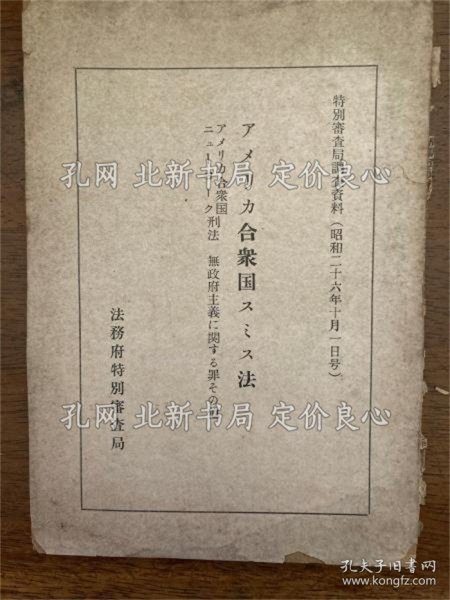 特別審査局調査資料（昭和二十六年十月一日号）
アメリカ合衆国スミス法
アメリカ合衆国
ニューヨーク刑法　無政府主義に関する罪その他
法務府特別審査局
孔网 北新书局 定价良心
孔网 北新书局 定价良心
孔网 北新书局 定价良心
孔夫子旧书网
www.kongfz.com